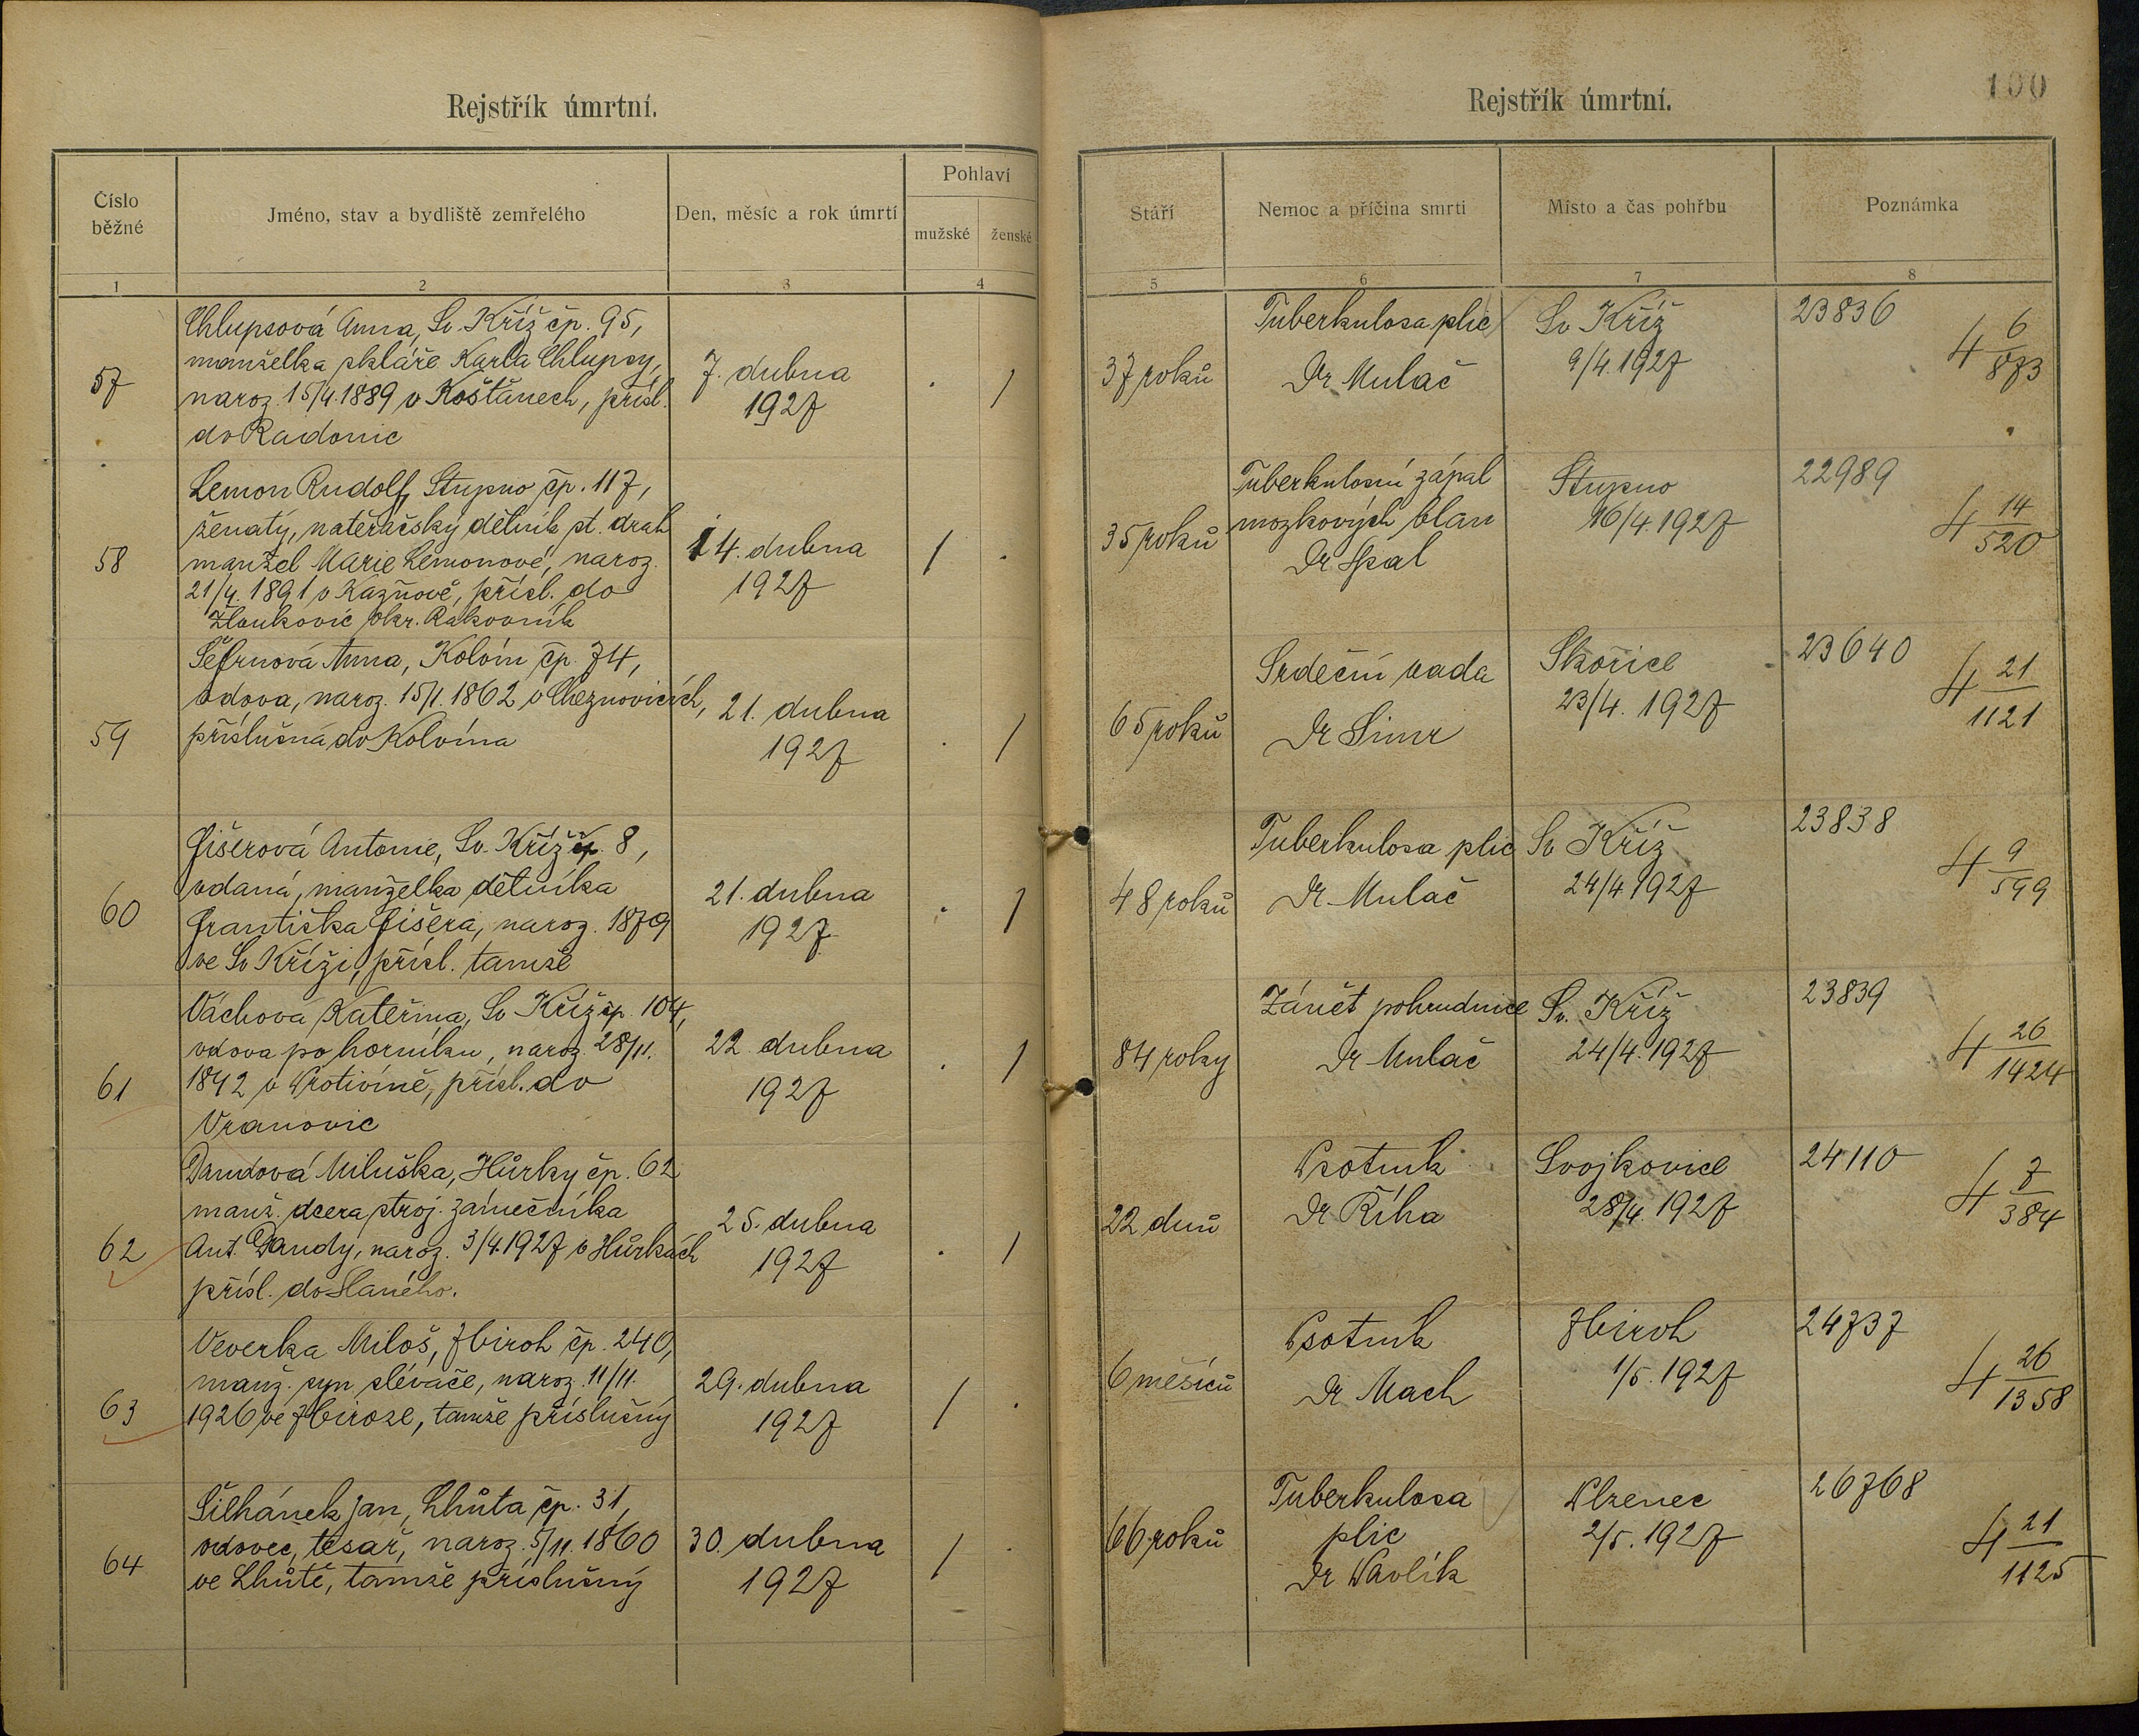 Rejstřík úmrtní.
Číslo běžné
Jméno, stav a bydliště zemřelého
Den, měsíc a rok úmrtí
Pohlaví
mužské
ženské
1
2
3
4
57
Chlupsová Anna, Sv. Kříž čp. 95,
manželka skláře Karla Chlupsy,
naroz. 15/4. 1889 v Košťanech, přísl.
do Radonic
7. dubna
1927
.
/
58
Lemon Rudolf, Stupno čp. 117,
ženatý, natěračský dělník st. drah
manžel Marie Lemonové, naroz.
21/4. 1891 v Kazňově, přísl. do
okr. Rakovník
14. dubna
1927
/
.
59
Šefrnová Anna, Kolvín čp. 74,
vdova, naroz. 15/1. 1862 v Cheznovicích,
příslušná do Kolvína
21. dubna
1927
.
/
60
Fišerová Antonie, Sv. Kříž čp. 8,
vdaná, manželka dělníka
Františka Fišera, naroz. 1879
ve Sv Kříži, přísl. tamže
21. dubna
1927
.
/
61
Váchová Kateřina, Sv Kříž čp. 104,
vdova po horníku, naroz. 28/11.
1842 v Protivíně, přísl. do
Vranovic
22. dubna
1927
.
/
62
Dandová Miluška, Hůrky čp. 62
manž. dcera stroj. zámečníka
Ant. Dandy, naroz. 3/4. 1927 v Hůrkách
přísl. do Slaného.
25. dubna
1927
.
/
63
Veverka Miloš, Zbiroh čp. 240,
manž. syn slévače, naroz. 11/11.
1926 ve Zbiroze, tamže příslušný
29. dubna
1927
/
.
64
Šilhánek Jan, Lhůta čp. 31,
vdovec, tesař, naroz. 5/11. 1860
ve Lhůtě, tamže příslušný
30. dubna
1927
/
.
Rejstřík úmrtní.
100
Stáří
Nemoc a příčina smrti
Místo a čas pohřbu
Poznámka
5
6
7
8
37 roků
Tuberkulosa plic
Dr Mulač
Sv Kříž
9/4. 1927
23836
4 6/873
35 roků
Tuberkulosní zápal
mozkových blan
Dr Opal
Stupno
16/4. 1927
22989
4 14/520
65 roků
Srdeční vada
Dr Simr
Skořice
23/4. 1927
23640
4 21/1121
48 roků
Tuberkulosa plic
Dr Mulač
Sv Kříž
24/4 1927
23838
4 9/599
84 roky
Zánět pohrudnice
Dr Mulač
Sv. Kříž
24/4. 1927
23839
4 26/1424
22 dnů
Psotník
Dr Říha
Svojkovice
28/4. 1927
24110
4 7/384
6 měsíců
Psotník
Dr Mach
Zbiroh
1/5. 1927
24737
4 26/1358
66 roků
Tuberkulosa
plic
Dr Pavlík
Plzenec
2/5. 1927
26768
4 21/1125